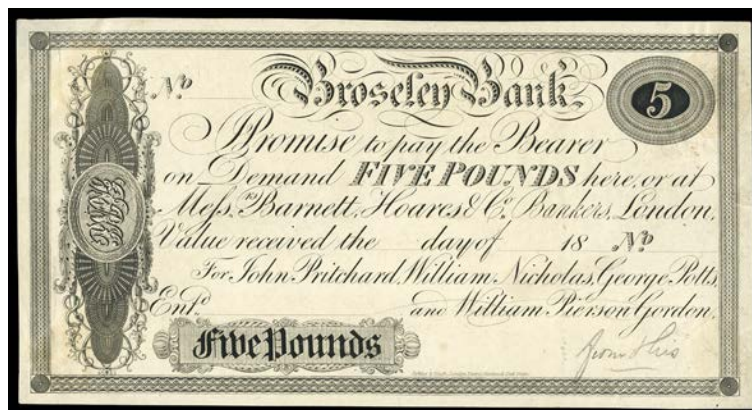 Broseley Bank.
Nº
5
I Promise to pay the Bearer
on Demand FIVE POUNDS here, or at
Mess.rs Barnett, Hoares & Co. Bankers, London,
Value received the day of 18 Nº
For John Pritchard, William Nicholas, George Potts,
Ent.d and William Pierson Gordon.
Five Pounds